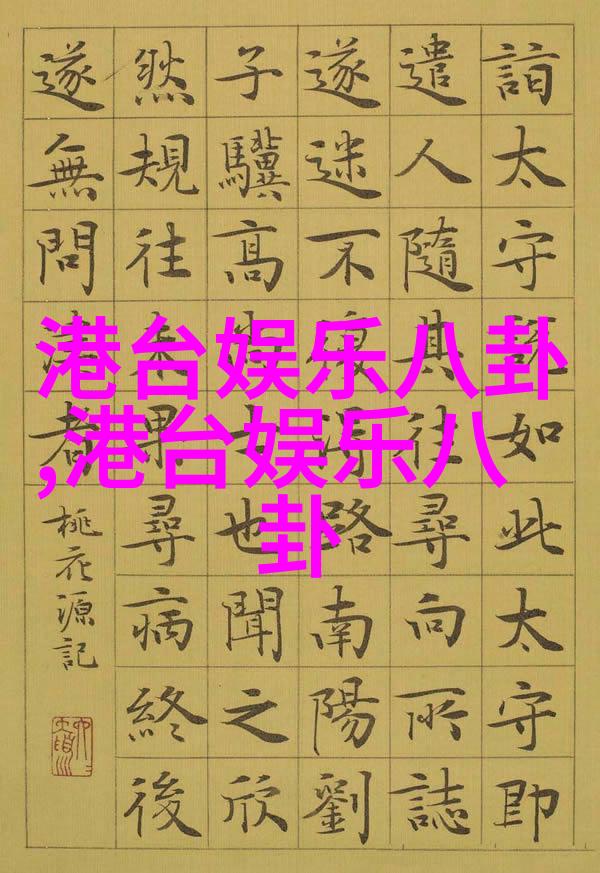 詣太守說如此太守即
遣人隨其往尋向所誌
遂迷不復得路南陽劉
子驥高尚士也聞之欣
然規往未果尋病終後
遂無問津者
桃花源記
港台娱乐八卦
,港台娱乐八
卦